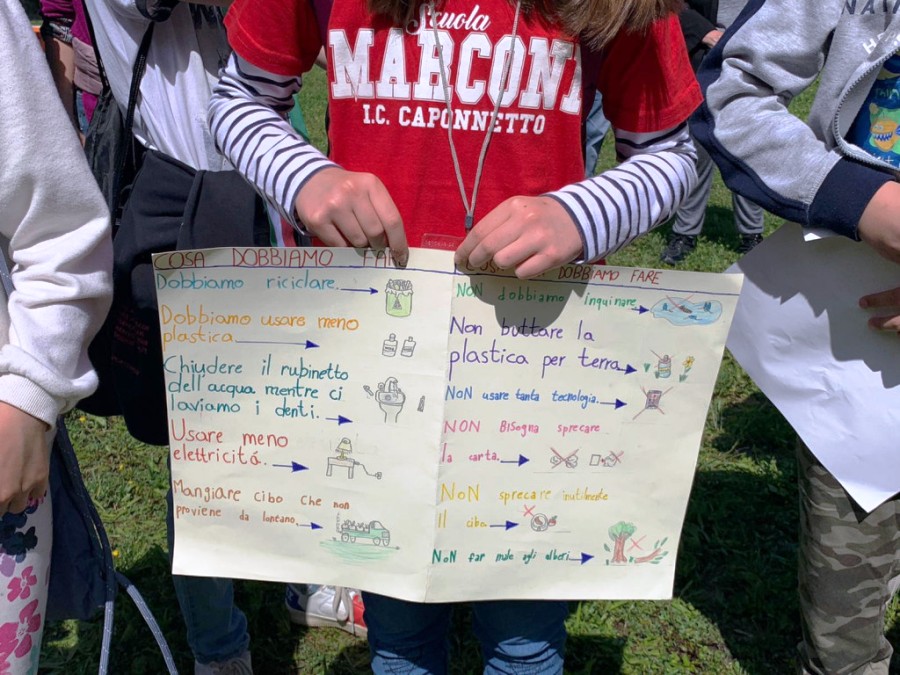 Scuola
MARCONI
I.C. CAPONNETTO
COSA DOBBIAMO FARE
Dobbiamo riciclare.
Dobbiamo usare meno
plastica.
Chiudere il rubinetto
dell'acqua mentre ci
laviamo i denti.
Usare meno
elettricitá.
Mangiare cibo che non
proviene da lontano.
DOBBIAMO FARE
NON dobbiamo inquinare
Non buttare la
plastica per terra
NON usare tanta tecnologia.
NON BISogna sprecare
la carta.
NoN sprecare inutilmente
Il cibo
NoN far male agli alberi